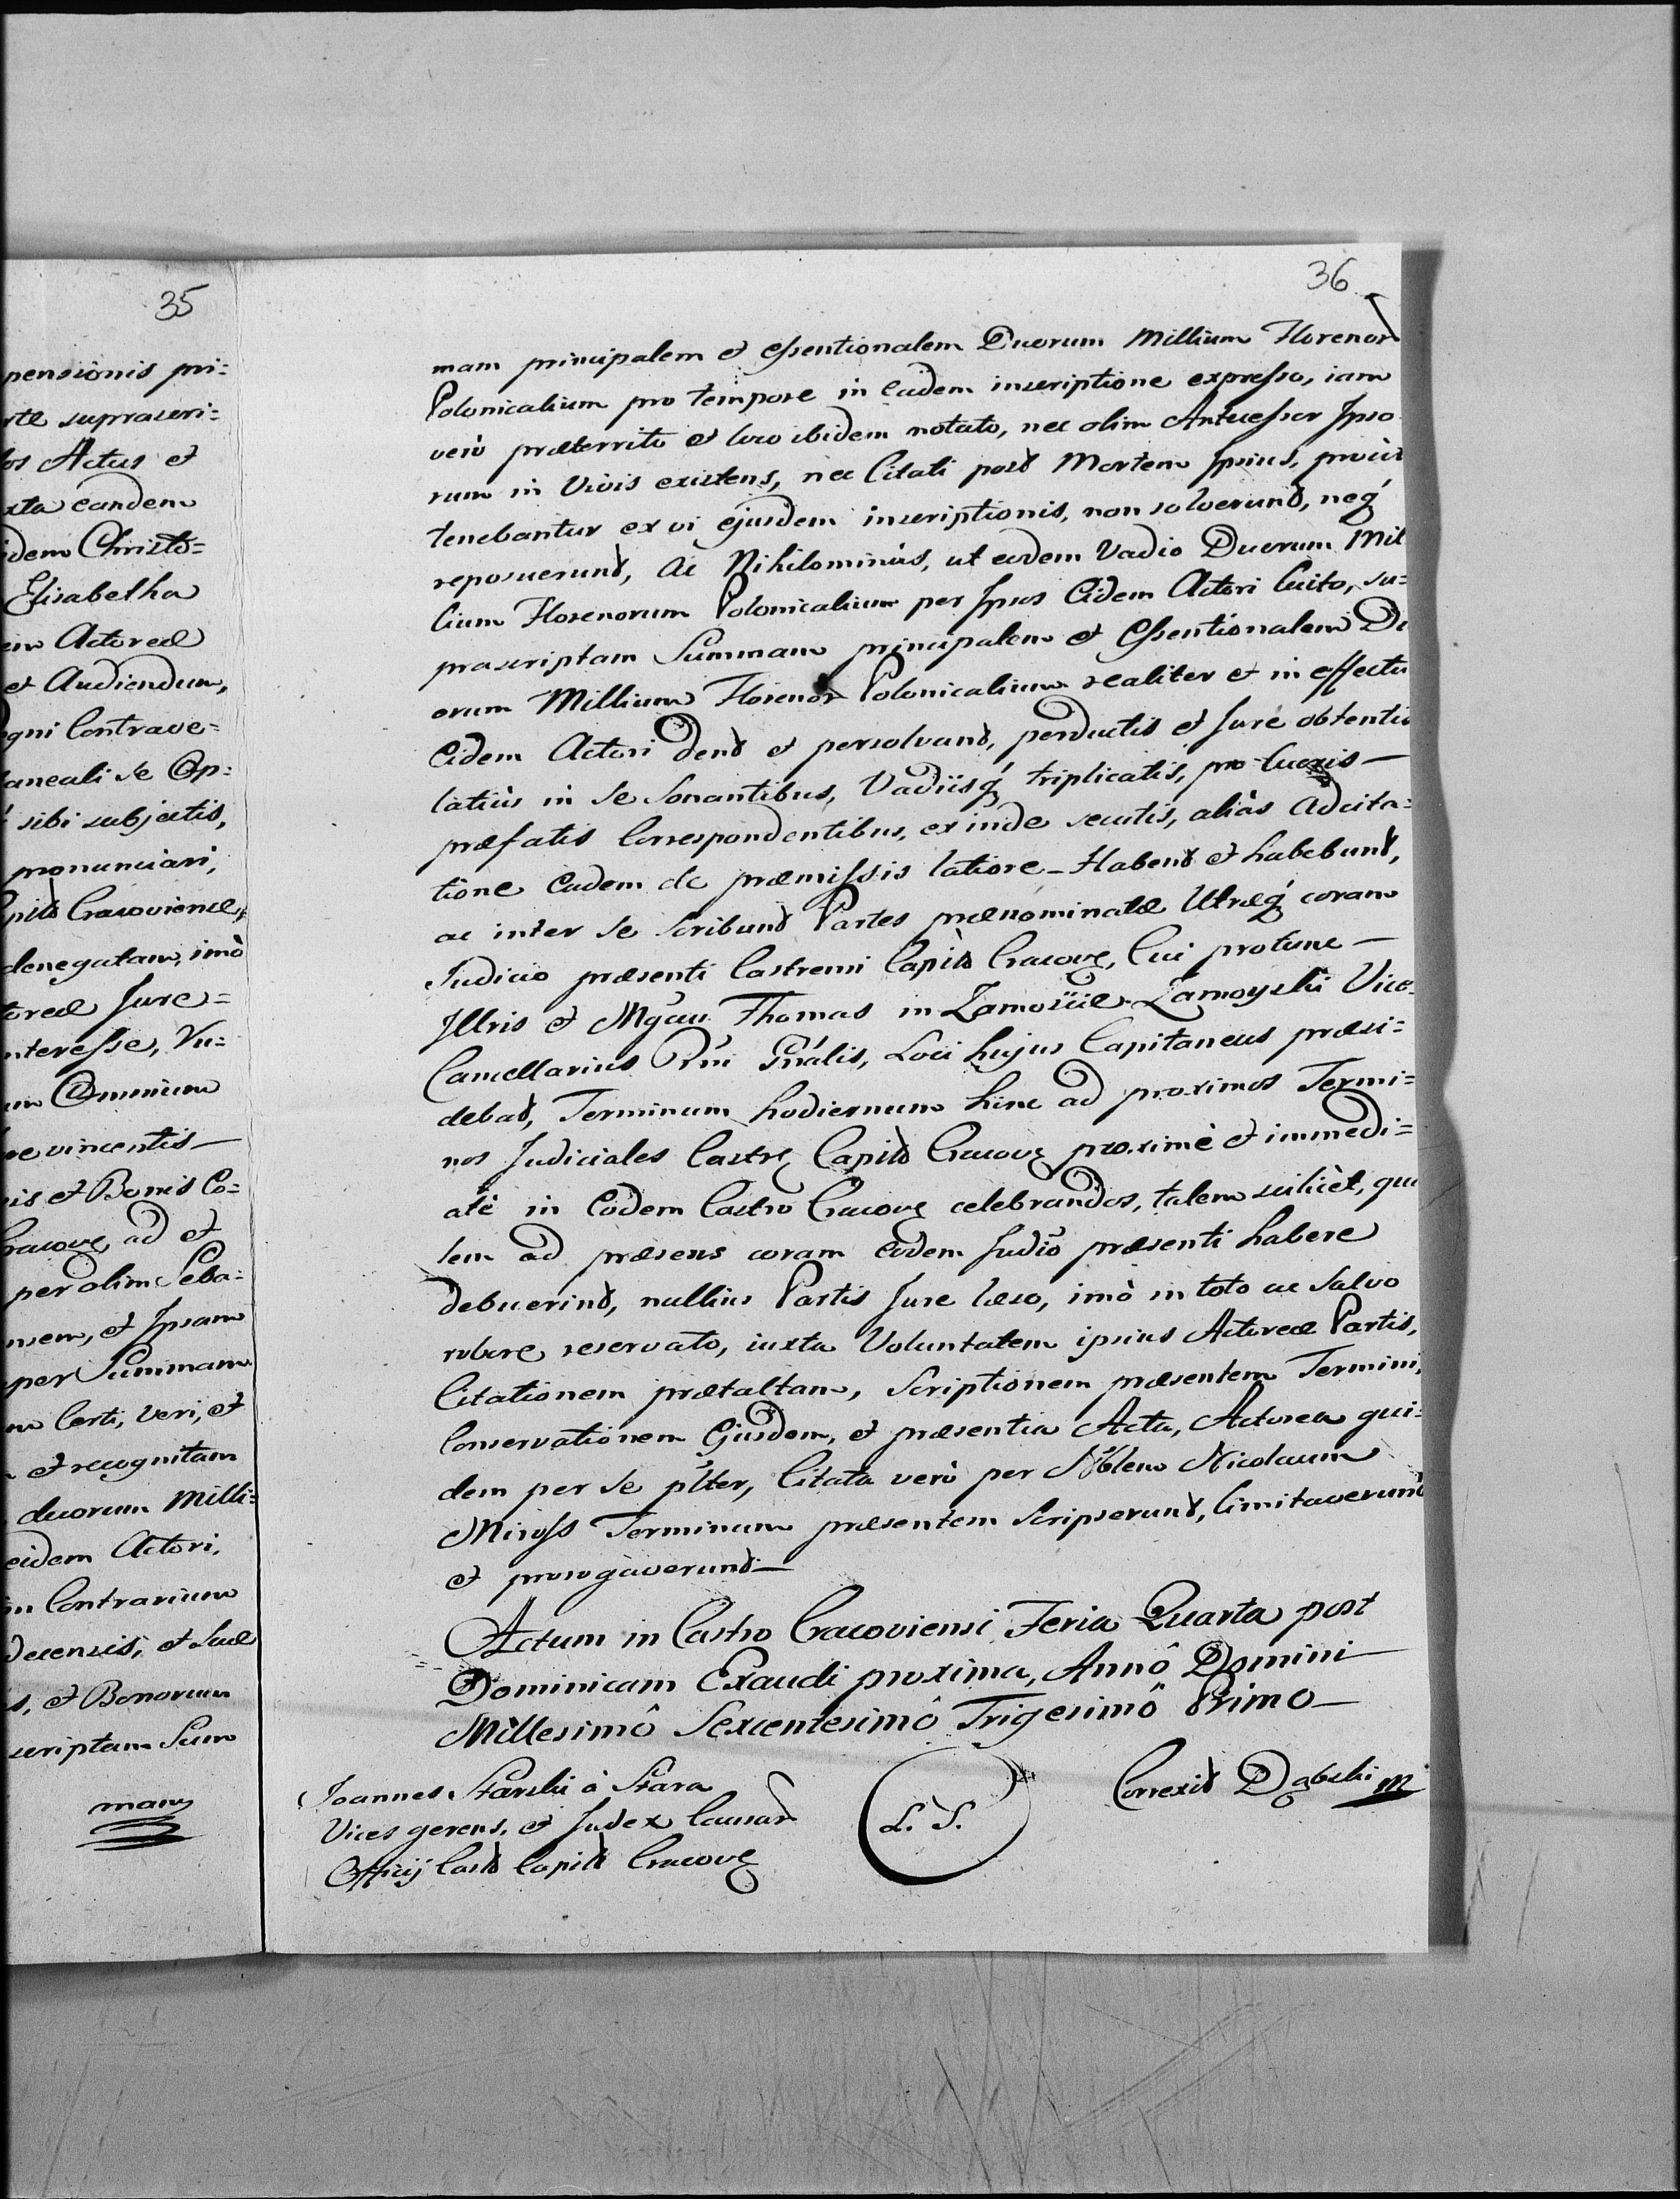 35
pensionis pri=
rte suprascri=
los Actus et
xta eandem
idem Christo=
Elisabetha
em Actoreæ
et Audiendum,
egni Contrave=
taneali se Op=
sibi subjectis,
pronunciari,
Capitl Cracoviense,
denegatam, imò
toreæ Jure=
nteresse, Vu=
um Omnium
ve vincentis—
nis et Bonis Co=
Cracove ad et
per olim Seba=
nsem, et Ipsam
per Summam
m Certi, veri, et
et recognitam
duorum Milli=
eidem Actori,
in Contrarium
decensis, et suæ
s, et Bonorum
scriptam Sum
mam
36
mam principalem et essentionalem Duorum Millium Florenor
Polonicalium pro tempore in eadem inscriptione expresso, iam
verò præterrito et loco ibidem notato, nec olim Antecessor Ipso
rum in Vivis existens, nec Citati post Mortem Ipsius, proùt
tenebantur ex vi ejusdem inscriptionis, non solverunt, neq
reposuerunt, Ac Nihilominùs, ut eodem Vadio Duorum Mil
lium Florenorum Polonicalium per Ipsos Eidem Actori luito, su=
prascriptam Summam principalem et Essentionalem Du
orum Millium Florenor Polonicalium realiter et in effectu
Eidem Actori dent et persolvant, perductis et Jure obtentis
latiùs in se Sonantibus, Vadiisq triplicatis, pro lucris—
præfatis Correspondentibus, exinde secutis, aliàs Adcita=
tione Eadem de præmissis latiore—Habent et habebunt,
ac inter se Scribunt Partes prænominatæ Utræq coram
Judicio præsenti Castrensi Capitl Cracove, Cui protunc—
Illris et Mgcus Thomas in Zamoscie Zamoyski Vice=
Cancellarius Rni Gnalis, Loci hujus Capitaneus præsi=
debat, Terminum hodiernum hinc ad proximos Termi=
nos Judiciales Castre Capitl Cracove proximè et immedi=
atè in Eodem Castro Cracove celebrandos, talem scilicèt, qua
lem ad præsens coram eodem Judio præsenti habere
debuerint, nullius Partis Jure læso, imò in toto ac Salvo
robore reservato, iuxta Voluntatem ipsius Actoreæ Partis,
Citationem prætaltam, Scriptionem præsentem Termini,
Conservationem Ejusdem, et præsentia Acta, Actorea qui=
dem per se plter, Citata verò per Nblem Nicolaum
Miross Terminum præsentem Scripserunt, limitaverunt
et prorogaverunt—
Actum in Castro Cracoviensi Feria Quarta post
Dominicam Exaudi proxima, Annô Domini
Millesimô Sexcentesimô Trigesimô Primo—
Joannes Starski à Stara
Vices gerens, et Judex Causar
Officij Castr Capitl Cracove
L. S.
Correxit Dąbski m